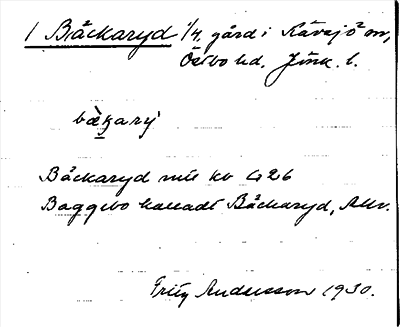 1 Bäckaryd 1/4 gård i Kävsjö sn,
Östbo hd, Jönk. l.
bæ̀karý
Bäckaryd mtl kb G26
Baggebo kalladt Bäckaryd,
Fritz Andersson 1930.